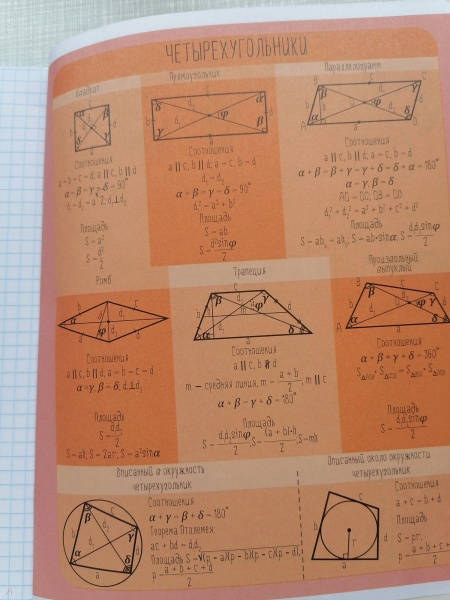 ЧЕТЫРЕХУГОЛЬНИКИ
Квадрат
Соотношения
a = b = c = d; a || c, b || d
α = β = γ = δ = 90°
Площадь
S = a²
S = d²/2
Прямоугольник
Соотношения
a || c, b || d; a = c, b = d
d₁ = d₂
α = β = γ = δ = 90°
d₁² = a² + b²
Площадь
S = ab
S = d²sinφ/2
Параллелограмм
Соотношения
a || c, b || d; a = c, b = d
α + β = β + γ = γ + δ = δ + α = 180°
α = γ, β = δ
AO = OC; OB = OD
d₁² + d₂² = a² + b² + c² + d²
Площадь
S = ahₐ = bh_b, S = ab·sinα, S = d₁d₂sinφ/2
Ромб
Соотношения
a || c, b || d; a = b = c = d
α = γ, β = δ, d₁⊥d₂
Площадь
S = d₁d₂/2
S = ah; S = 2ar; S = a²sinα
Трапеция
Соотношения
a || c, b ∦ d
m — средняя линия, m = a + b/2, m || c
α + β = γ + δ = 180°
Площадь
S = d₁d₂sinφ/2; S = (a + b)·h/2; S = mh
Произвольный
выпуклый
Соотношения
α + β + γ + δ = 360°
Площадь
S = d₁d₂sinφ/2
Вписанный в окружность
четырехугольник
Соотношения
α + γ = β + δ = 180°
Теорема Птолемея:
ac + bd = d₁d₂
Площадь S = √(p - a)(p - b)(p - c)(p - d),
p = a + b + c + d/2
Описанный около окружности
четырехугольник
Соотношения
a + c = b + d
Площадь
S = pr,
p = a + b + c +